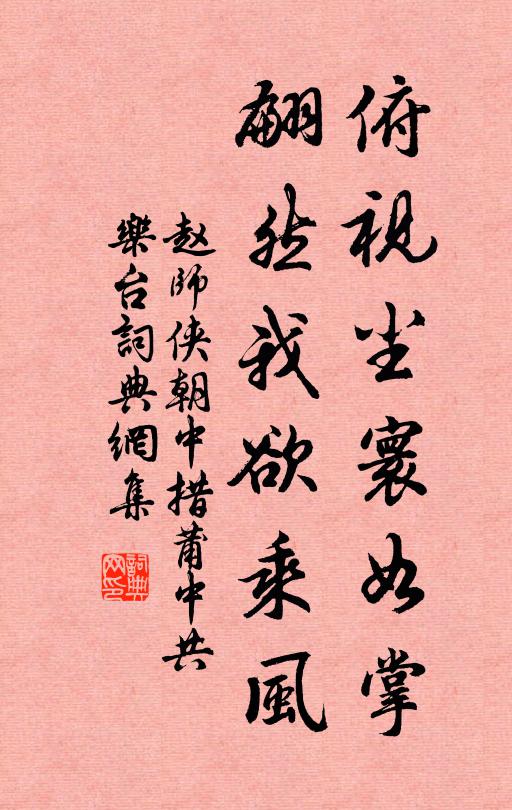 俯視尘寰如掌
翩然我欲乘風
赵師侠朝中措莆中共
樂台詞典網集
詞典网印